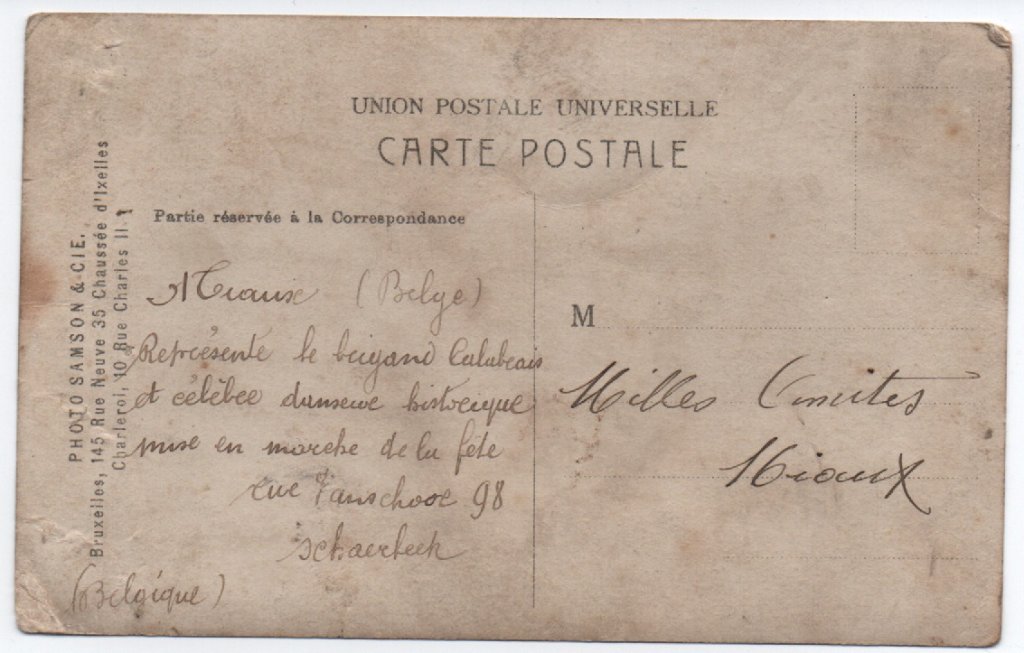 UNION POSTALE UNIVERSELLE
CARTE POSTALE
Partie réservée à la Correspondance
PHOTO SAMSON & CIE.
Bruxelles, 145 Rue Neuve 35 Chaussée d'Ixelles
Charleroi, 10 Rue Charles II
Miaux (Belge)
Représente le brigand Calabrais
et célèbre danseur historique
mise en marche de la fête
rue Vanschoor 98
Schaerbeek
(Belgique)
M
Milles
Miaux